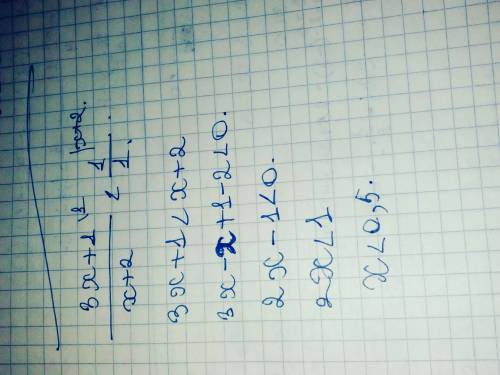 3x+1 \1 / x+2 < 1 /x+2 / 1.
3x+1<x+2
3x-x+1-2<0.
2x-1<0.
2x<1
x<0,5.